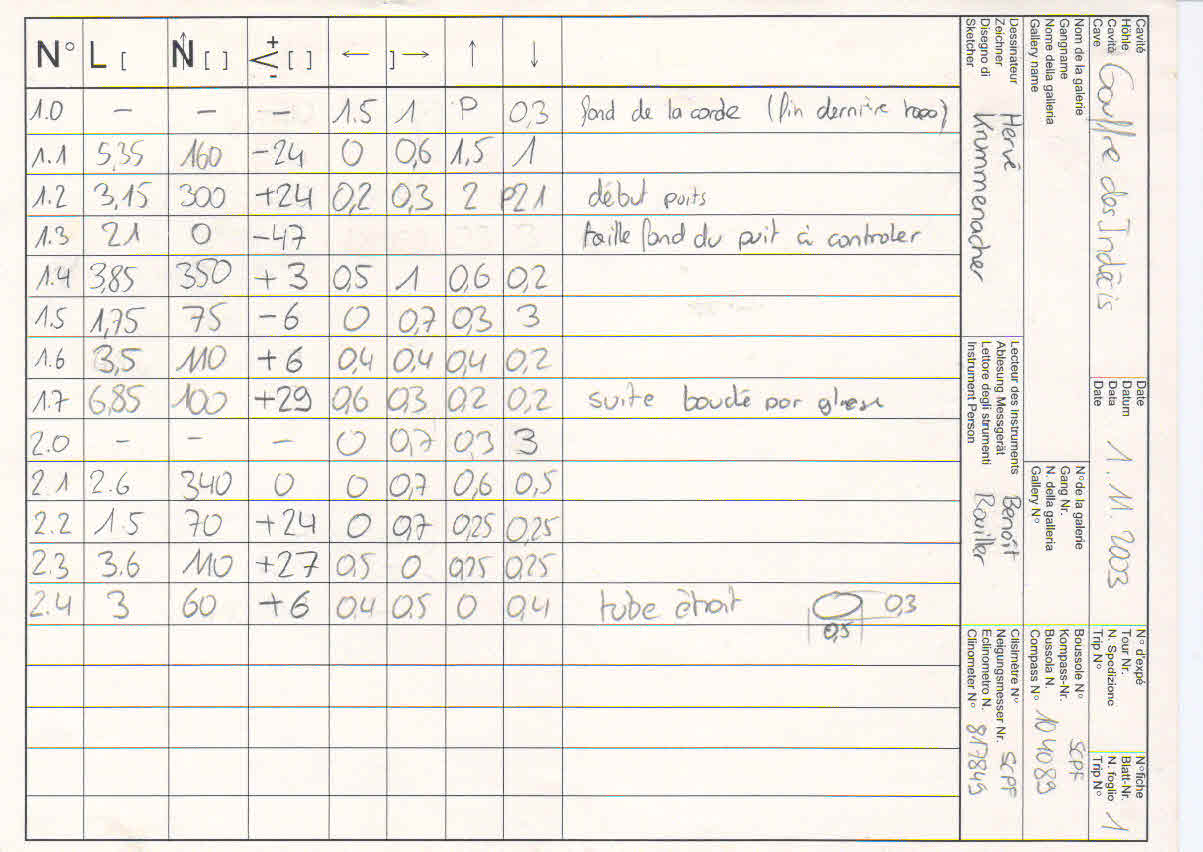 N° L [ N [ ] < + - [ ] ← ] → ↑ ↓
1.0 – – – 1.5 1 P 0,3 fond de la corde (fin dernière topo)
1.1 5,35 160 -24 0 0,6 1,5 1
1.2 3,15 300 +24 0,2 0,3 2 P21 début puits
1.3 21 0 -47 taille fond du puit à controler
1.4 3,85 350 + 3 0,5 1 0,6 0,2
1.5 1,75 75 - 6 0 0,7 0,3 3
1.6 3,5 110 + 6 0,4 0,4 0,4 0,2
1.7 6,85 100 +29 0,6 0,3 0,2 0,2 suite bouché par
2.0 – – – 0 0,7 0,3 3
2.1 2.6 340 0 0 0,7 0,6 0,5
2.2 1.5 70 +24 0 0,7 0,25 0,25
2.3 3.6 110 +27 0,5 0 0,25 0,25
2.4 3 60 +6 0.4 0.5 0 0,4 tube étroit 0,3
0,5
Cavité
Höhle
Cavità
Cave
Gouffre des Indécis
Date
Datum
Data
Date
1. 11. 2003
N° d'expé
Tour Nr.
N. Spedizione
Trip N°
N° fiche
Blatt-Nr.
N. foglio
Trip N°
1
Nom de la galerie
Gangname
Nome della galleria
Gallery name
N° de la galerie
Gang Nr.
N. della galleria
Gallery N°
Boussole N°
Kompass-Nr.
Bussola N.
Compass N°
SCPF
104089
Dessinateur
Zeichner
Disegno di
Sketcher
Hervé
Krummenacher
Lecteur des instruments
Ablesung Messgerät
Lettore degli strumenti
Instrument Person
Benoît
Rouiller
Clisimètre N°
Neigungsmesser Nr.
Eclinometro N.
Clinometer N°
SCPF
817849